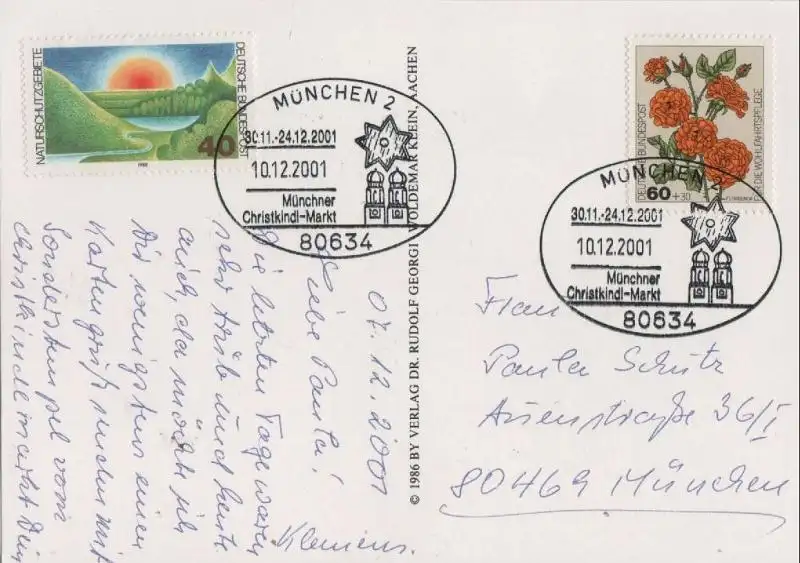 NATURSCHUTZGEBIETE
DEUTSCHE BUNDESPOST
40
1980
MÜNCHEN 2
30.11.-24.12.2001
10.12.2001
Münchner
Christkindl-Markt
80634
DEUTSCHE BUNDESPOST
60 +30
FÜR DIE WOHLFAHRTSPFLEGE
MÜNCHEN 2
30.11.-24.12.2001
10.12.2001
Münchner
Christkindl-Markt
80634
© 1986 BY VERLAG DR. RUDOLF GEORGI WOLDEMAR KLEIN, AACHEN
07.12.2001
Liebe Paula!
Die letzten Tage waren
sehr trüb und heute
auch, da möchte ich
Dir wenigstens einen
Kartengruß senden mit
Sonderstempel vom
Christkindlmarkt Dein
Klemens.
Frau
Paula Schütz
36/I
80469 München